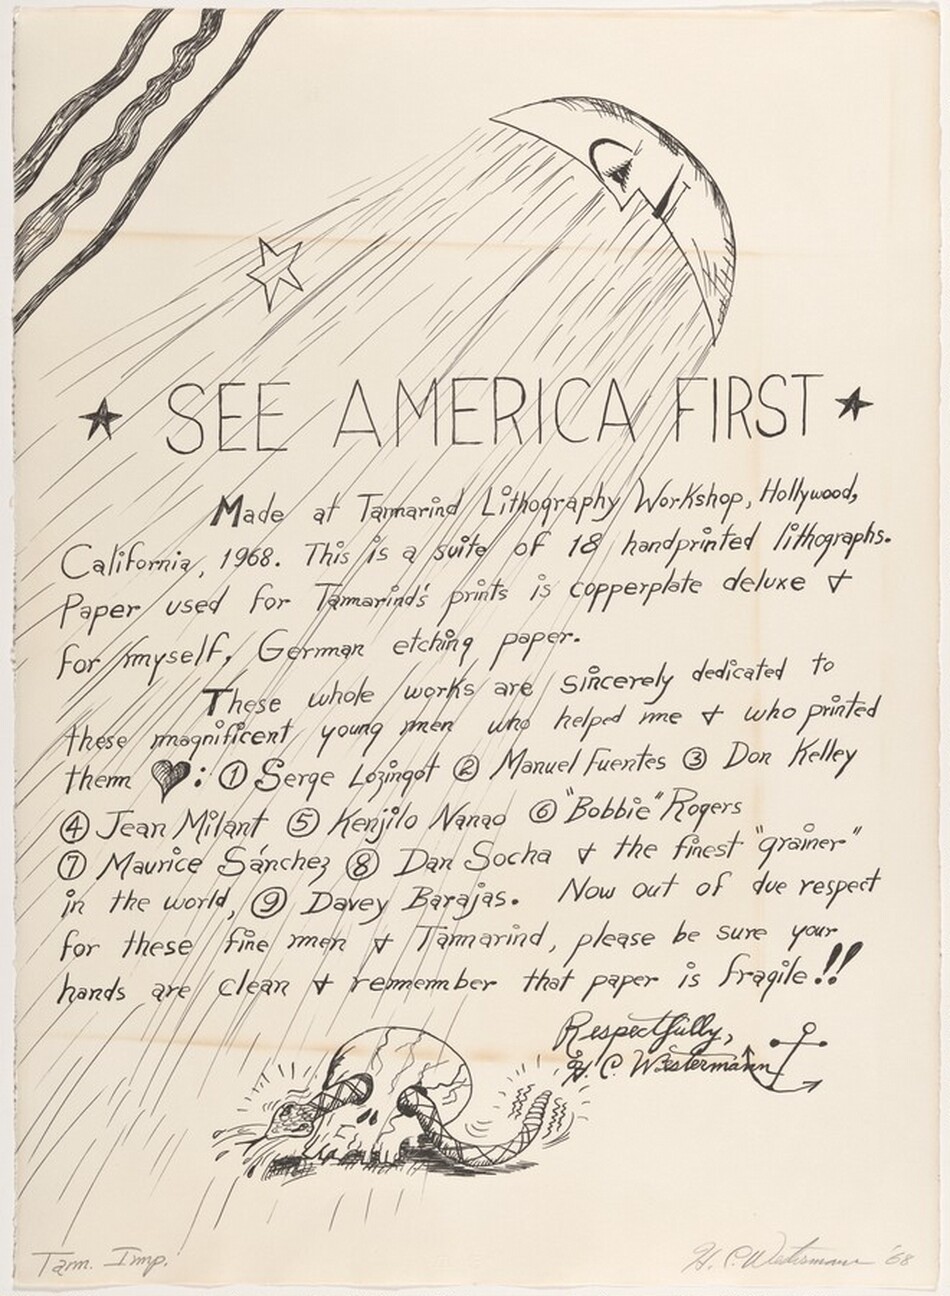 SEE AMERICA FIRST
Made at Tamarind Lithography Workshop, Hollywood,
California, 1968. This is a suite of 18 handprinted lithographs.
Paper used for Tamarind's prints is copperplate deluxe &
for myself, German etching paper.
These whole works are sincerely dedicated to
these magnificent young men who helped me & who printed
them ♥: ① Serge Lozingot ② Manuel Fuentes ③ Don Kelley
④ Jean Milant ⑤ Kenjilo Nanao ⑥ "Bobbie" Rogers
⑦ Maurice Sánchez ⑧ Dan Socha & the finest "grainer"
in the world, ⑨ Davey Barajas. Now out of due respect
for these fine men & Tamarind, please be sure your
hands are clean & remember that paper is fragile!!
Respectfully,
H. C. Westermann
Tam. Imp.
H. C. Westermann '68